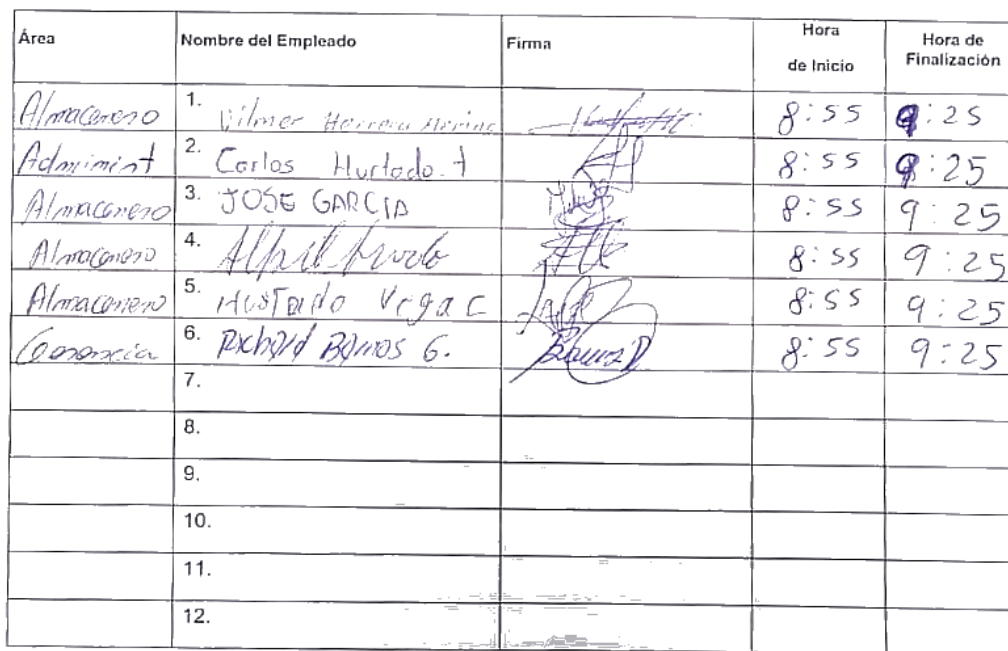 Área Nombre del Empleado Firma Hora de Inicio Hora de Finalización
Almacenero 1. Vilmer Herrera Merino 8:55 9:25
Administ 2. Carlos Hurtado.t 8:55 9:25
Almacenero 3. JOSE GARCIA 8:55 9:25
Almacenero 4. 8:55 9:25
Almacenero 5. Vega C 8:55 9:25
Gerencia 6. Richard Barrios G. 8:55 9:25
7.
8.
9.
10.
11.
12.